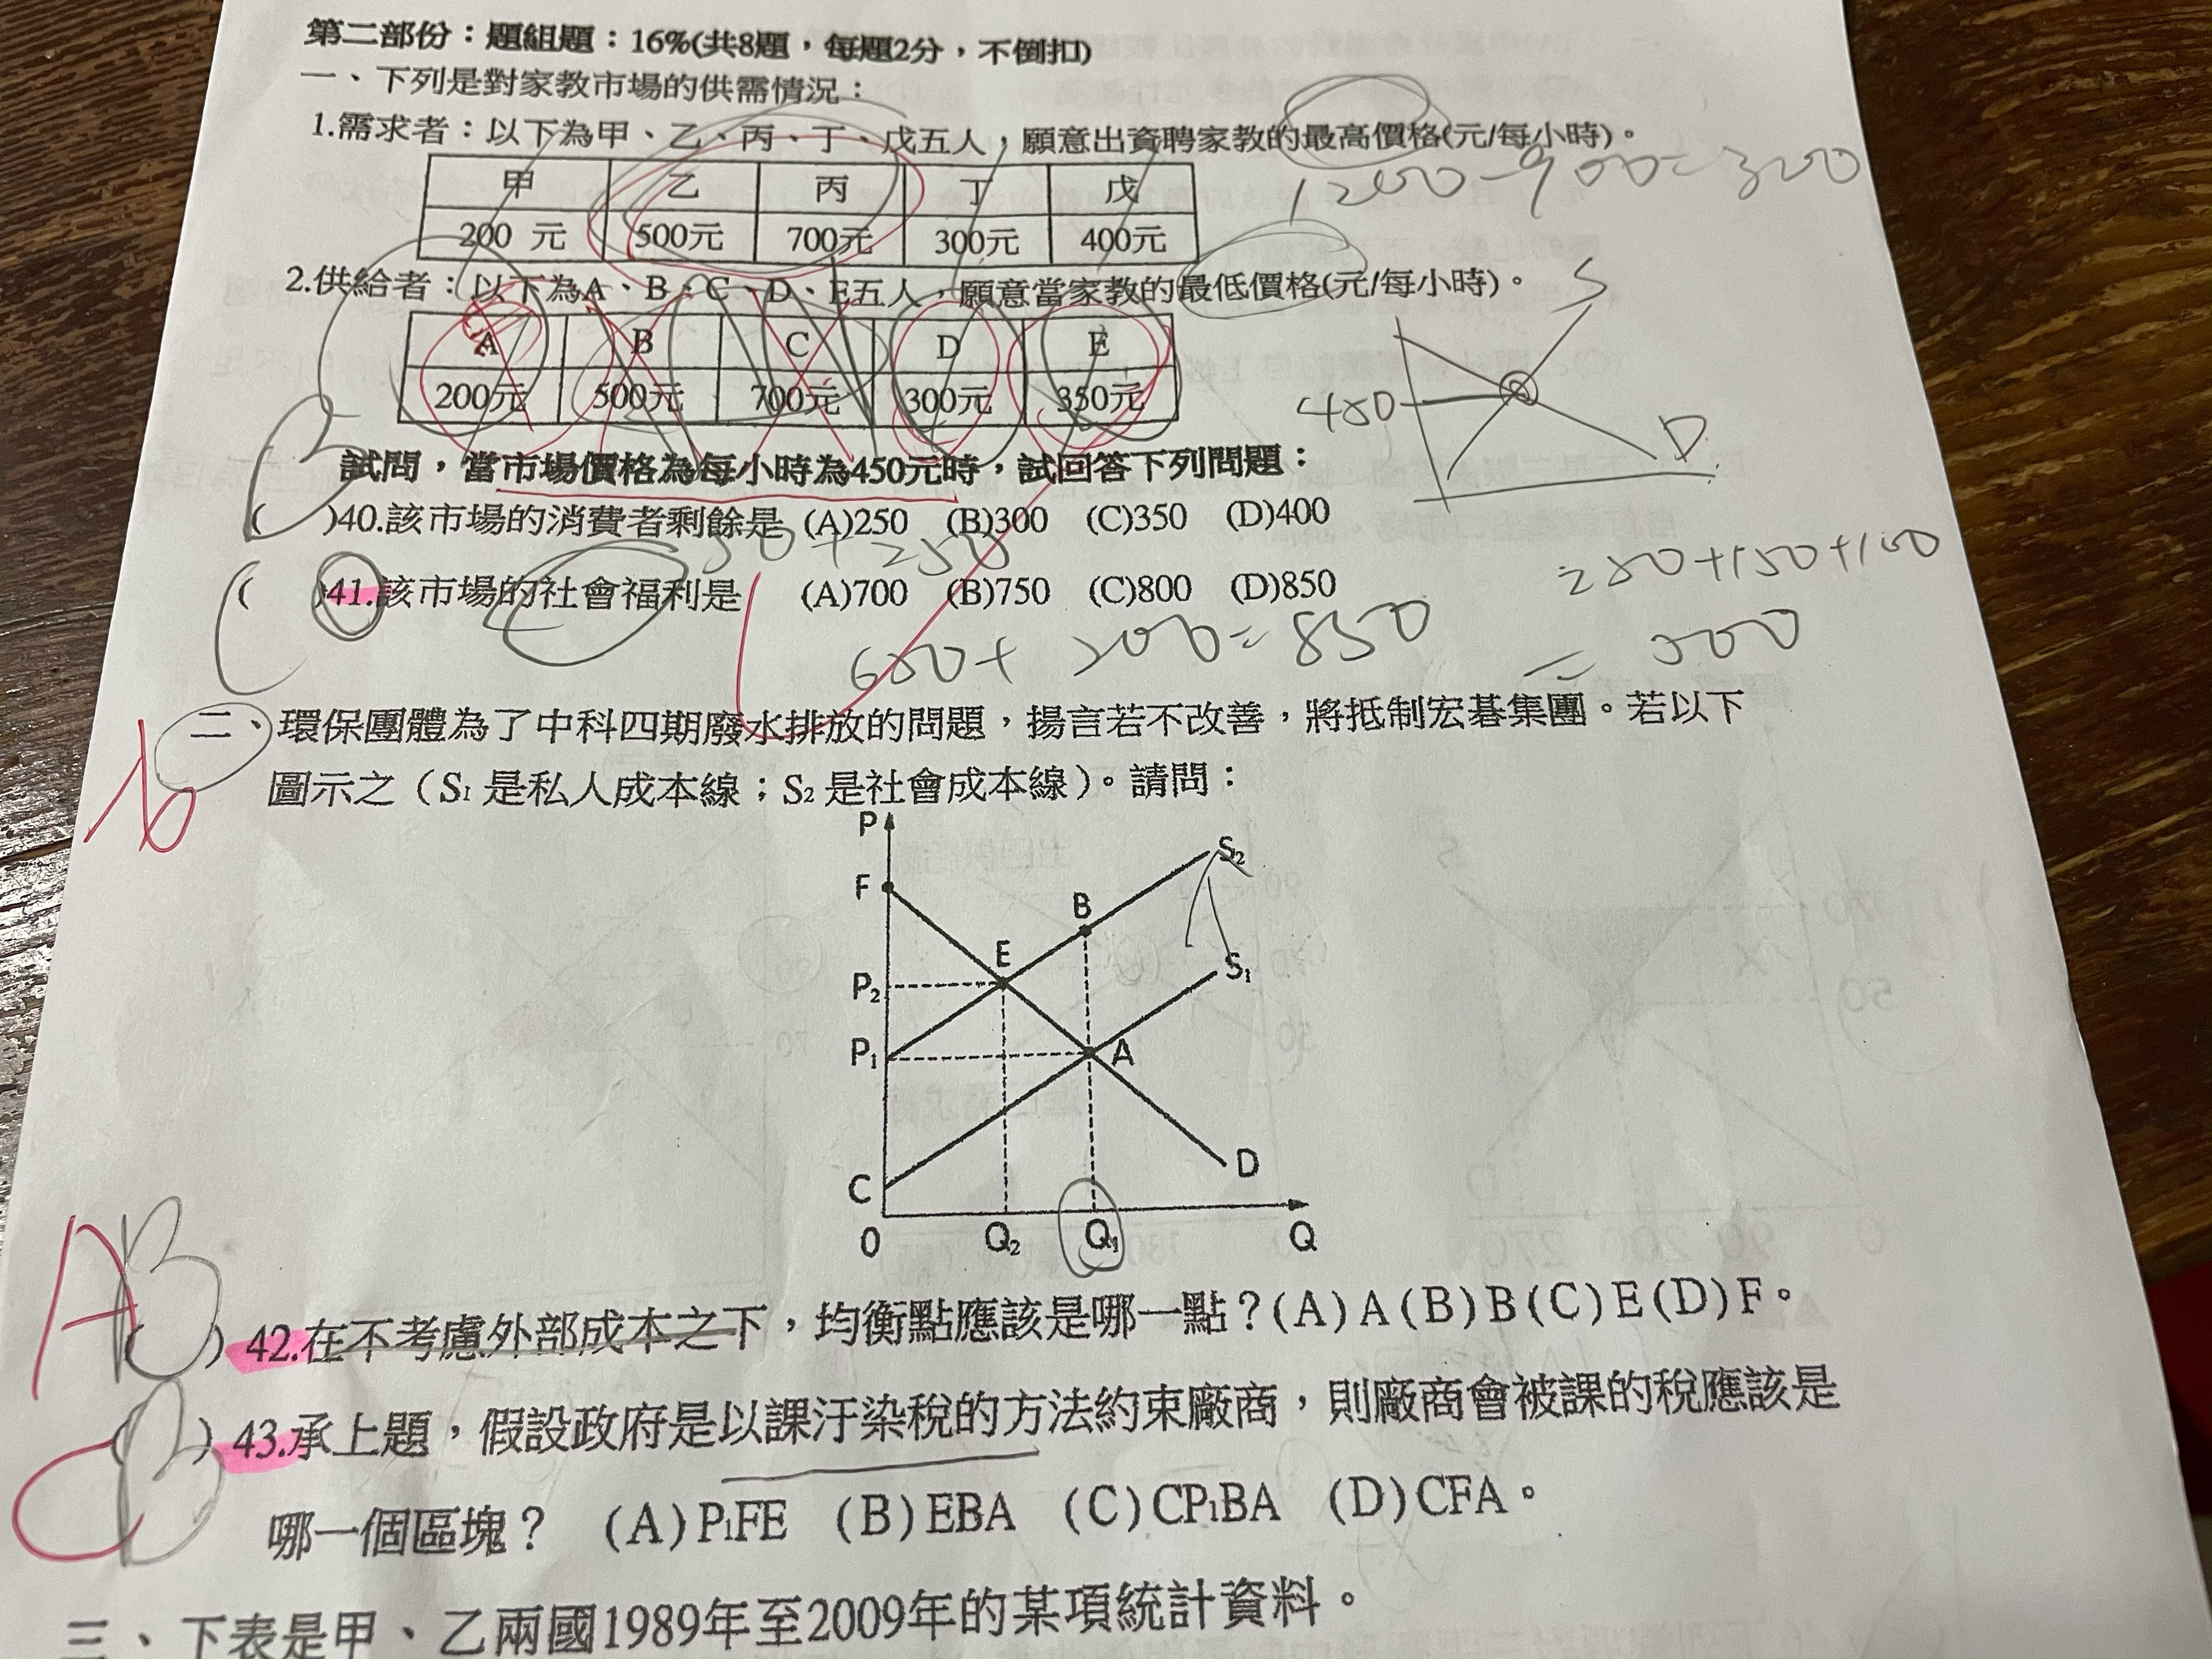 第二部份：題組題：16%(共8題，每題2分，不倒扣)
一、下列是對家教市場的供需情況：
1.需求者：以下為甲、乙、丙、丁、戊五人，願意出資聘家教的最高價格(元/每小時)。
1200-900=300
甲 乙 丙 丁 戊
200 元 500元 700元 300元 400元
2.供給者：以下為A、B、C、D、E五人，願意當家教的最低價格(元/每小時)。
A B C D E
200元 500元 700元 300元 350元
S
450
D
試問，當市場價格為每小時為450元時，試回答下列問題：
B
( )40.該市場的消費者剩餘是 (A)250 (B)300 (C)350 (D)400
50+250
250+150+100
=500
C
( )41.該市場的社會福利是 (A)700 (B)750 (C)800 (D)850
二、環保團體為了中科四期廢水排放的問題，揚言若不改善，將抵制宏碁集團。若以下
圖示之（S₁是私人成本線；S₂是社會成本線）。請問：
P
S₂
F
B
E
S₁
P₂
P₁
A
D
C
0 Q₂ Q₁ Q
A B
( )42.在不考慮外部成本之下，均衡點應該是哪一點？(A)A(B)B(C)E(D)F。
C B
( )43.承上題，假設政府是以課汙染稅的方法約束廠商，則廠商會被課的稅應該是
哪一個區塊？ (A)P₁FE (B)EBA (C)CP₁BA (D)CFA。
三、下表是甲、乙兩國1989年至2009年的某項統計資料。